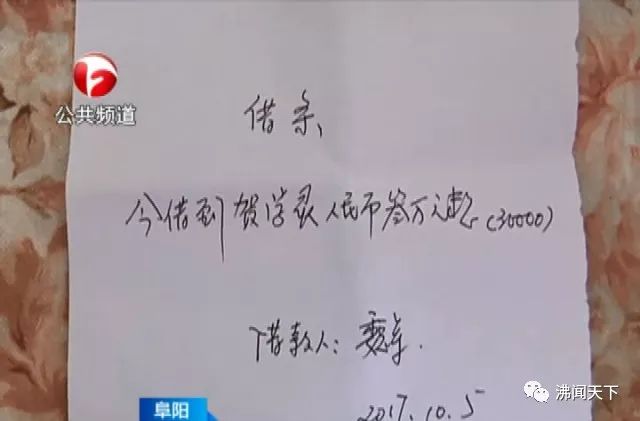 公共频道
借条
今借到贺学良人民币叁万元整(30000)
借款人:魏军.
2017.10.5
阜阳
沸闻天下